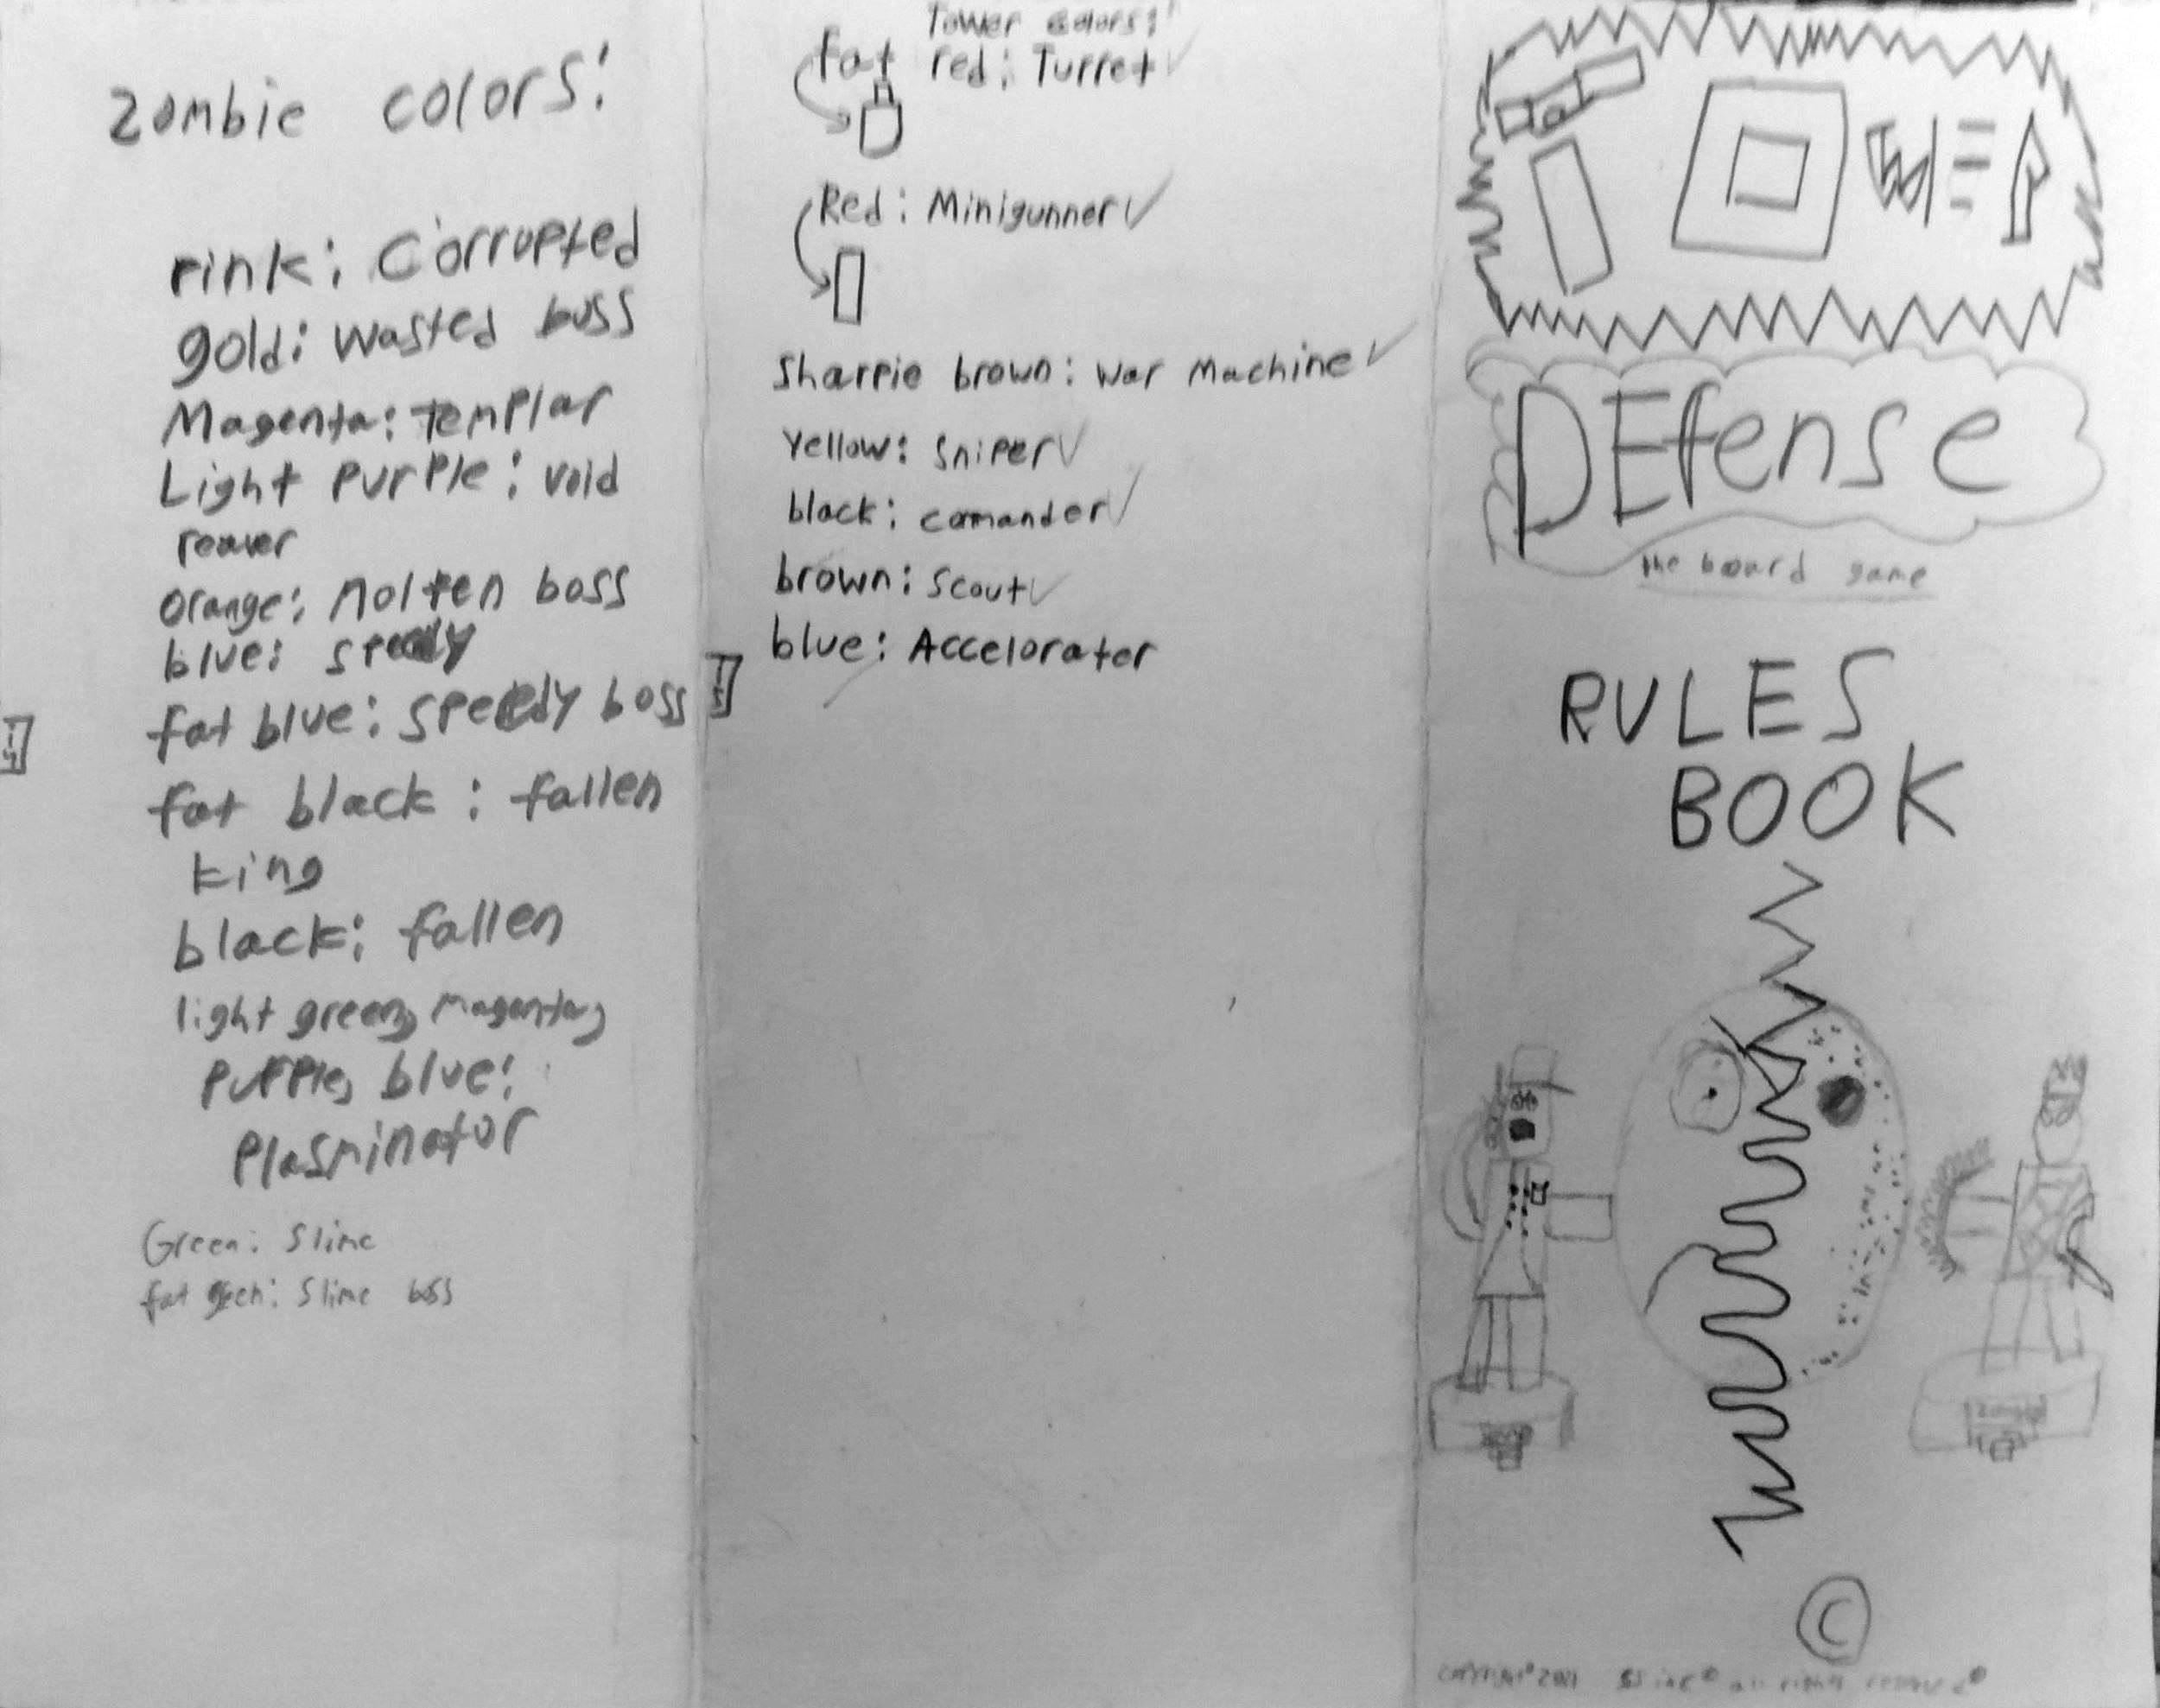 zombie colors:
Pink: Corrupted
gold: wasted boss
Magenta: Templar
Light Purple: void
reaver
Orange: Molten boss
blue: speedy
fat blue: speedy boss
fat black: fallen
king
black: fallen
light green, magenta,
Purple, blue:
Plasminator
Green: Slime
fat green: Slime boss
Tower colors:
fat red: Turret ✓
Red: Minigunner ✓
Sharpie brown: War Machine ✓
Yellow: Sniper ✓
black: comander ✓
brown: Scout ✓
blue: Accelorator
TOWER
DEfense
the board game
RULES
BOOK
©
all rights